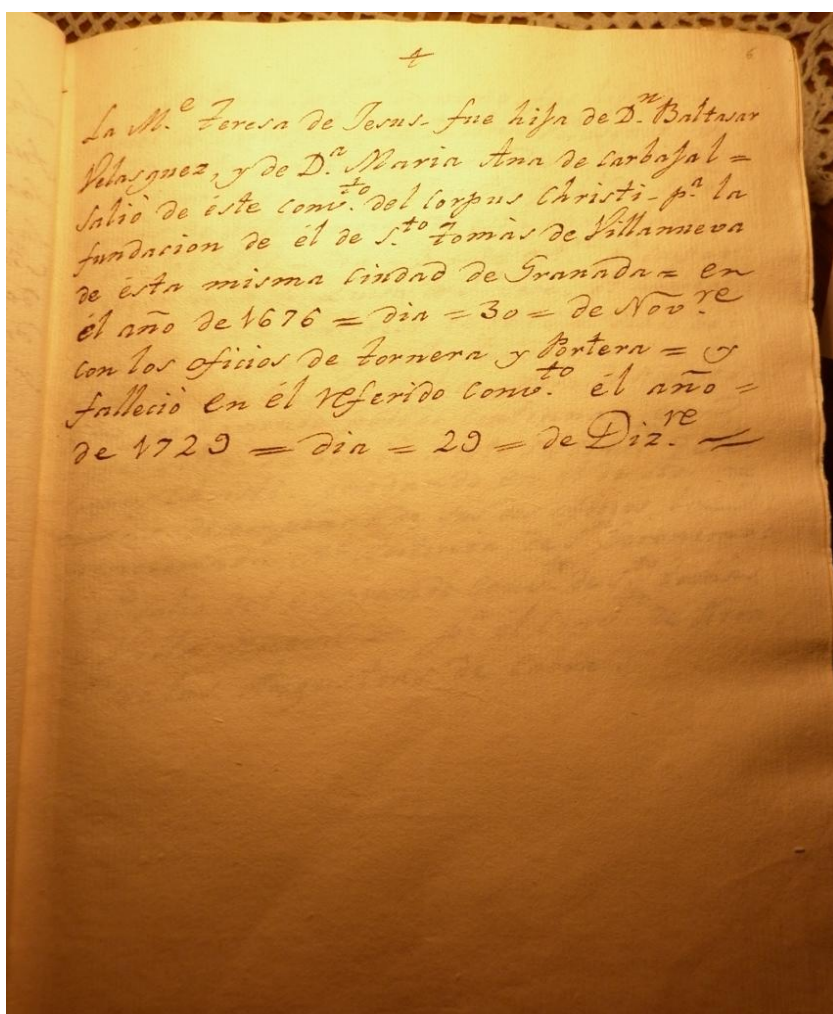 6
La M.e Teresa de Jesus- fue hija de D.n Baltasar
Velasquez, y de D.a Maria Ana de Carbajal =
Saliò de èste Conv.to del Corpus Christi- p.a la
fundacion de èl de S.to Tomàs de Villanueva
de èsta misma Ciudad de Granada = en
èl año de 1676 = dia = 30 = de Nov.re
con los oficios de tornera y Portera = y
falleciò en èl referido Conv.to èl año =
de 1729 = dia = 29 = de Diz.re =